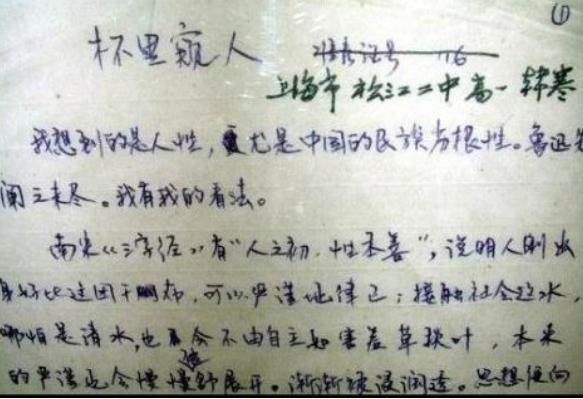 ①
杯里窥人 准考证号 116
上海市松江二中高一韩寒
我想到的是人性,尤是中国的民族劣根性。鲁迅
阐之未尽。我有我的看法。
南宋《三字经》有“人之初,性本善”,说明人刚出
身好比这团干布,可以严谨地律己;接触社会这水,
哪怕是清水,也会不由自主如害羞草㧟叶,本来
的严谨也会慢慢地舒展开。渐渐被浸润透。思想便向